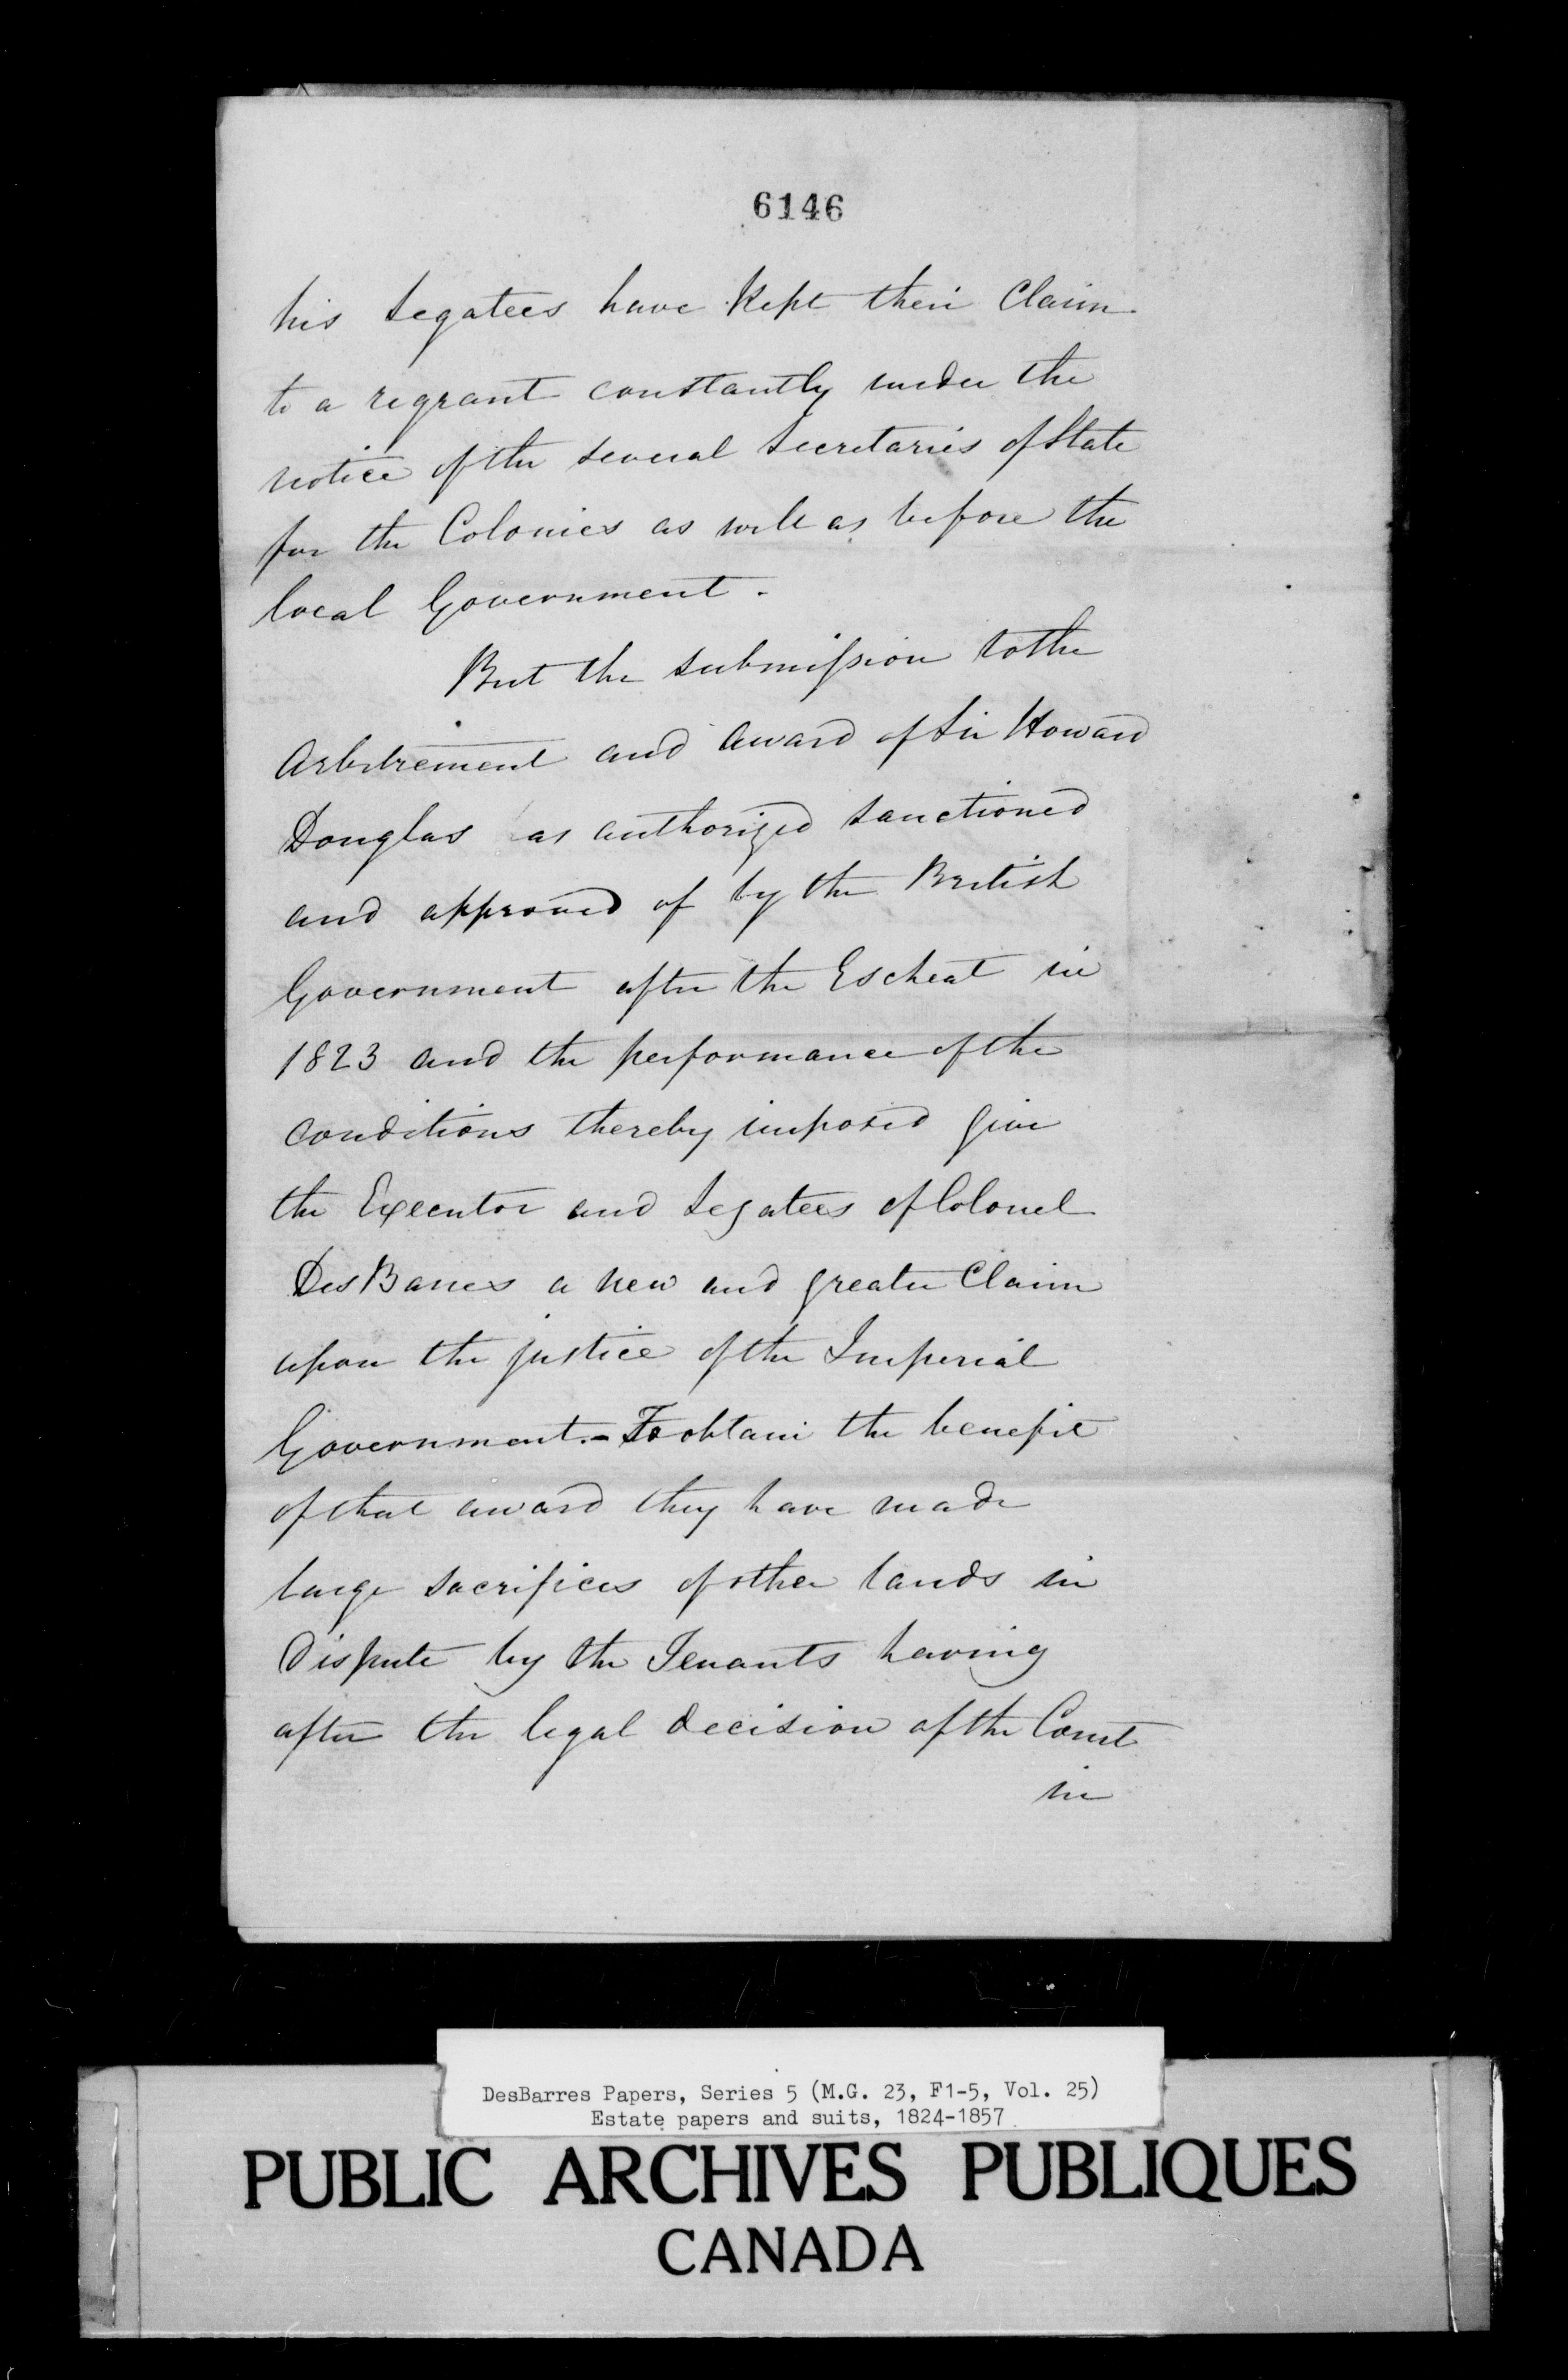 6146
his Legatees have Kept their Claim
to a regrant constantly under the
notice of the several Secretaries of State
for the Colonies as well as before the
local Government.
But the submission to the
Arbitrement and Award of Sir Howard
Douglas as authorized sanctioned
and approved of by the British
Government after the Escheat in
1823 and the performance of the
conditions thereby imposed give
the Executor and Legatees of Colonel
DesBarres a new and greater Claim
upon the justice of the Imperial
Government.- To obtain the benefit
of that award they have made
large sacrifices of other lands in
Dispute by the Tenants having
after the legal decision of the Court
in
DesBarres Papers, Series 5 (M.G. 23, F1-5, Vol. 25)
Estate papers and suits, 1824-1857
PUBLIC ARCHIVES PUBLIQUES
CANADA